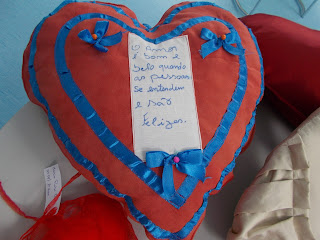 O Amor
é bom e
belo quando
as pessoas
se entendem
e são
Felizes.